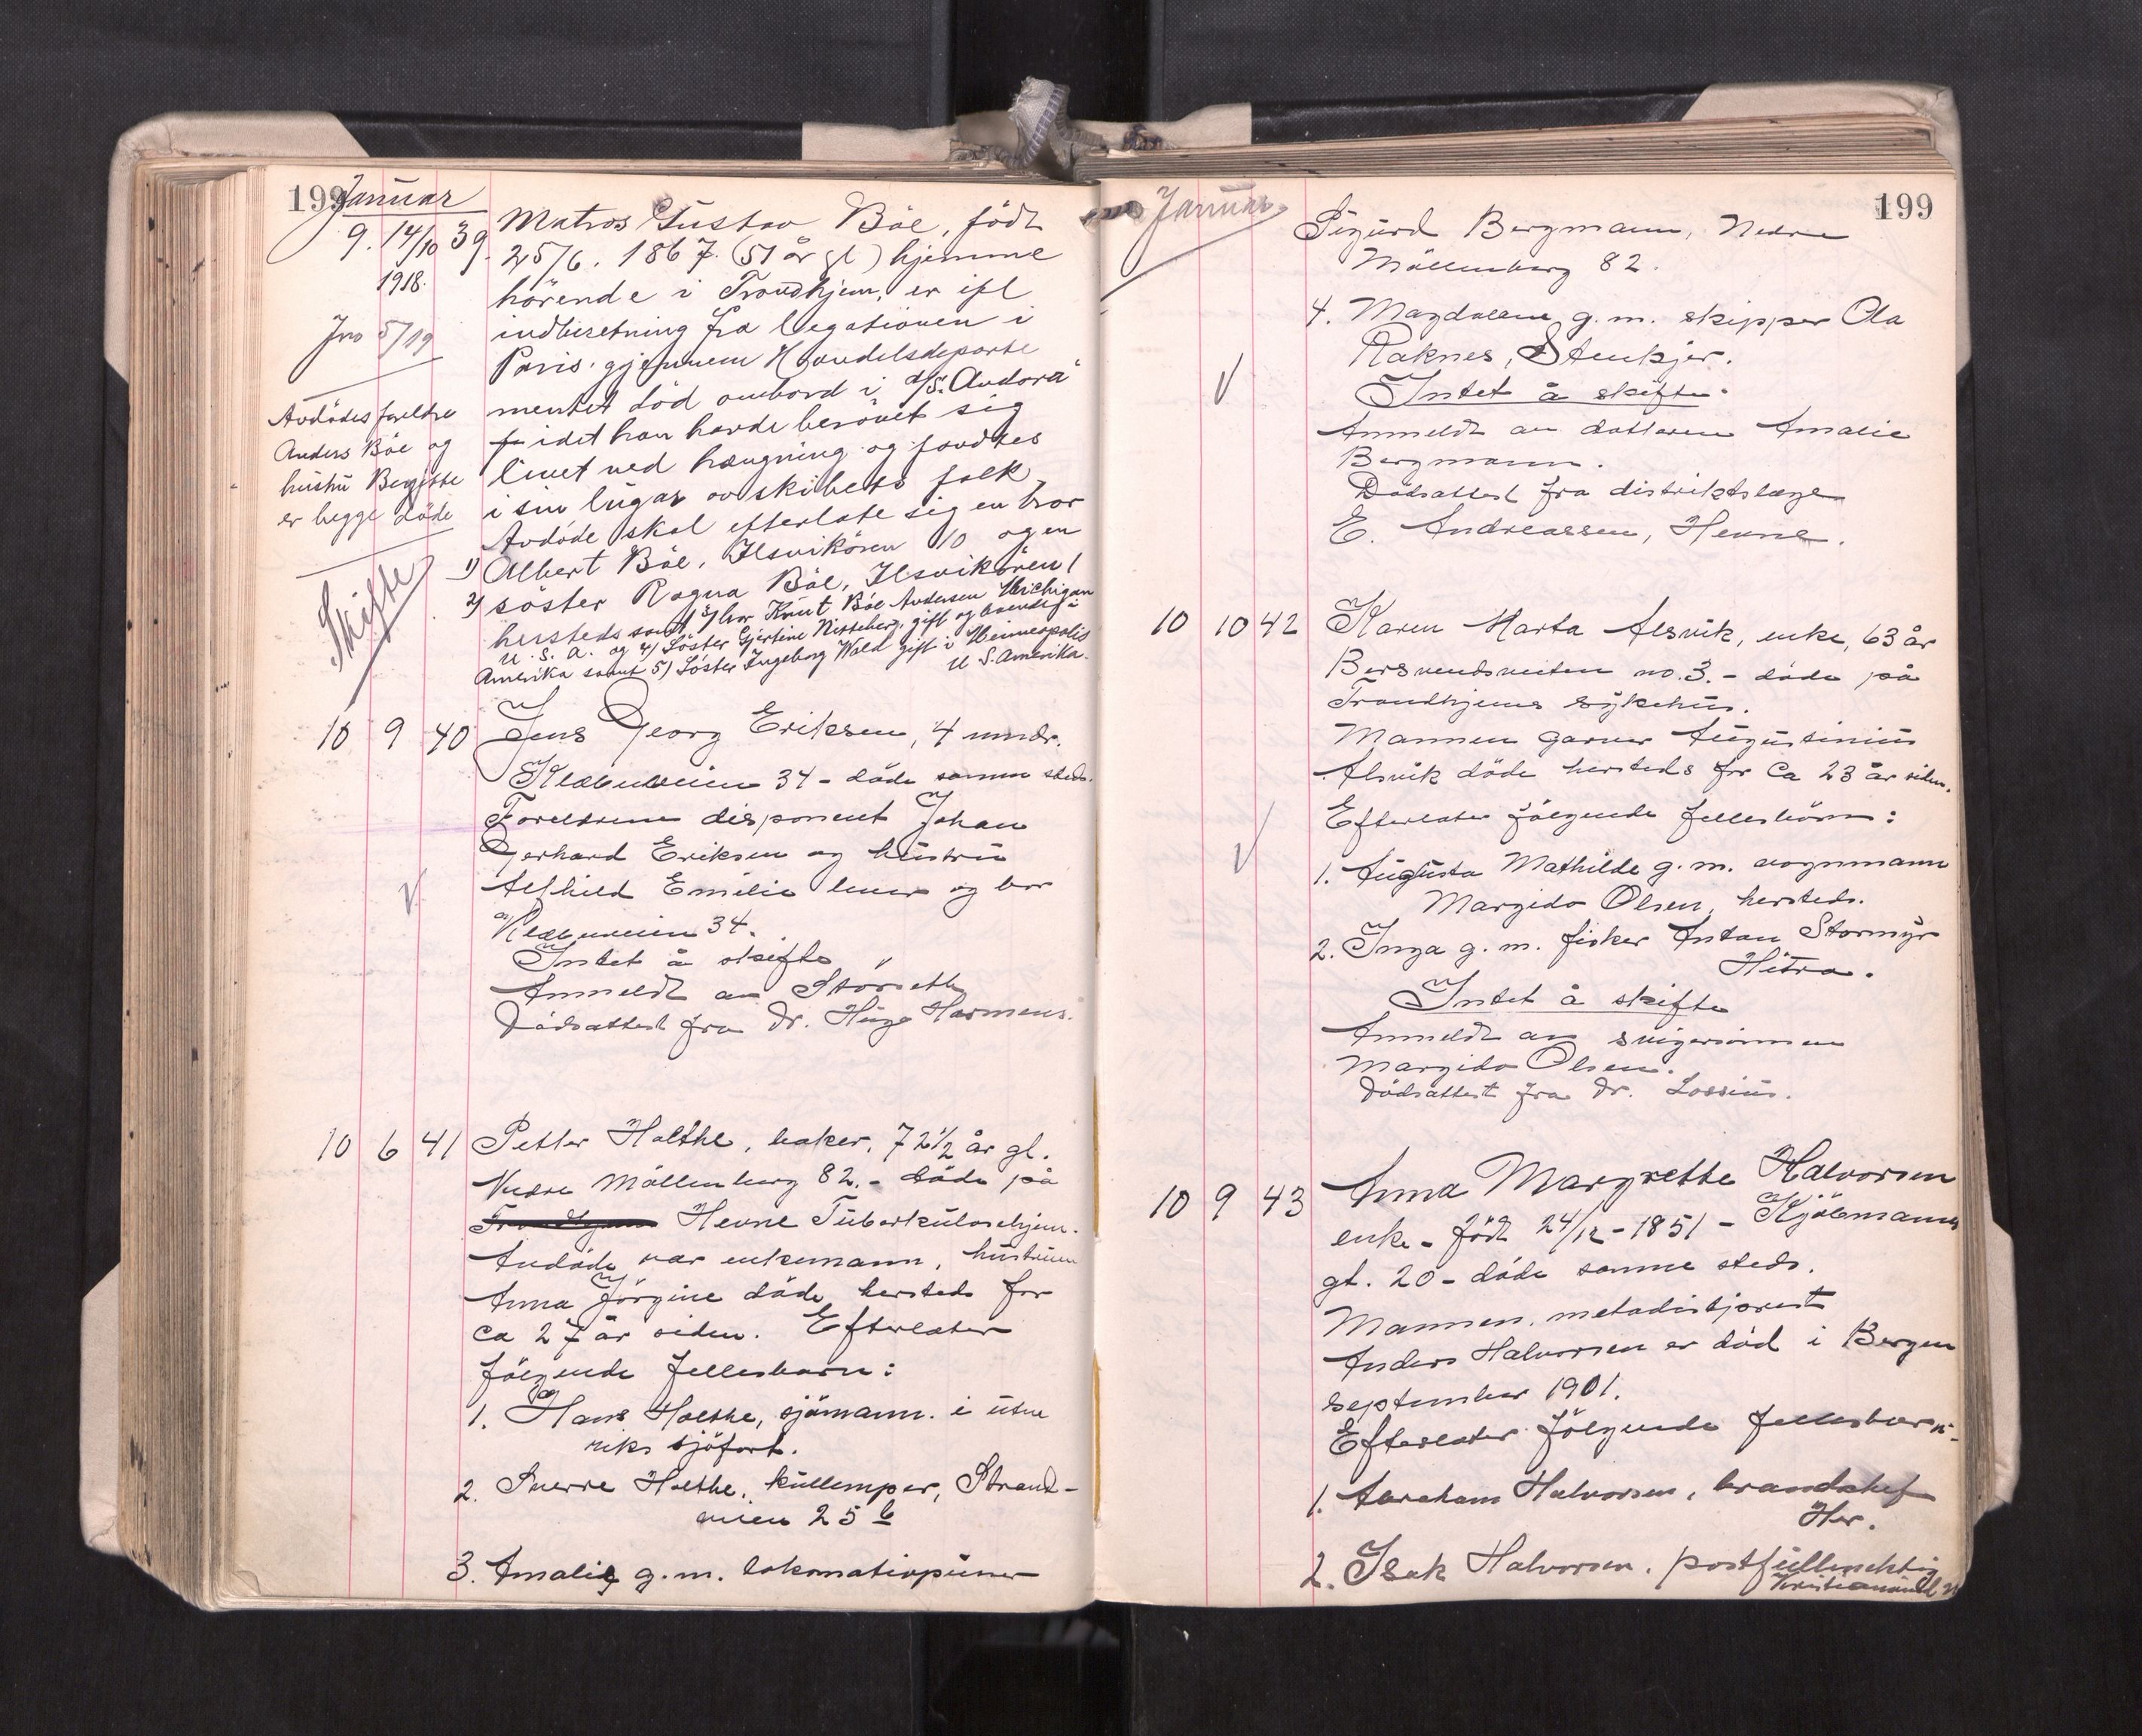 199
Januar
9. 14/10 39.
1918.
Jno 5/19
Avdödes foreldre
Anders Böe og
hustru Bergitte
er begge döde
Skifte
Matros Gustav Böe, födt
25/6. 1867. (51 år gl) hjemme
hörende i Trondhjem, er ifl
indberetning fra legationen i
Paris gjennem Handelsdeparte
mentet död ombord i d/s. "Andora"
idet han havde berövet sig
livet ved hængning og fandtes
i sin lugar av skibets folk
Avdöde skal efterlate sig en bror
1) Albert Böe, Ilsvikören 10 og en
2) söster Ragna Böe, Ilsvikören 1
hersteds samt 3) bror Knut Böe Andersen Michigan
U. S. A. og 4) Söster Gjertine Nisseberg, gift og boende i
Amerika samt 5) Söster Ingeborg Wold gift i Minneapolis
U S. Amerika.
10 9 40 Jens Georg Eriksen, 4 mndr.
Klæbuveien 34 - döde samme steds.
Foreldrene disponent Johan
Gerhard Eriksen og hustru
Alfhild Emilie lever og bor
Klæbuveien 34.
Intet å skifte
Anmeldt av Störseth
Dödsattest fra Dr. Hugo Harmens.
10 6 41 Petter Holthe, baker, 72 1/2 år gl.
Nedre Möllenberg 82. - döde på
Trondhjems Hevne Tuberkulosehjem.
Avdöde var enkemann, hustruen
Anna Jörgine döde hersteds for
ca 27 år siden. Efterlater
følgende fellesbarn:
1. Hans Holthe, sjömann. i uten
riks sjöfart.
2. Sverre Holthe, kullemper, Strand-
veien 25 b
3. Amalie g.m. lokomotivpusser
Januar
199
Sigurd Bergmann, Nedre
Möllenberg 82.
4. Magdalene g.m. skipper Ola
Raknes, Stenkjer.
Intet å skifte.
Anmeldt av datteren Amalie
Bergmann.
Dödsattest fra distriktslæge
E. Andreassen, Hevne.
10 10 42 Karen Marta Alsvik, enke, 63 år
Bersvendsveiten no. 3. - döde på
Trondhjems sykehus.
Mannen garver Augustinius
Alsvik döde hersteds for ca 23 år siden.
Efterlater fölgende fellesbörn:
1. Augusta Mathilde g.m. vognmann
Margido Olsen, hersteds.
2. Inga g.m. fisker Anton Stormyr
Hitra.
Intet å skifte
Anmeldt av svigersönnen
Margido Olsen.
Dödsattest fra Dr. Lossius.
10 9 43 Anna Margrethe Halvorsen
enke - född 24/12 - 1851 - Kjöbmanns
gt. 20 - döde samme steds.
Mannen, metodistprest
Anders Halvorsen er död i Bergen
september 1901.
Efterlater fölgende fellesbarn:
1. Abraham Halvorsen, brandchef
Her.
2. Isak Halvorsen, postfullmektig